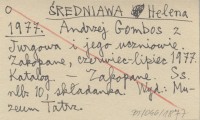 ŚREDNIAWA Helena
1977. Andrzej Gombos z
Jurgowa i jego uczniowie.
Zakopane, czerwiec-lipiec 1977.
Katalog – Zakopane. Ss.
nlb. 10, składanka. Wyd.: Mu-
zeum Tatrz.